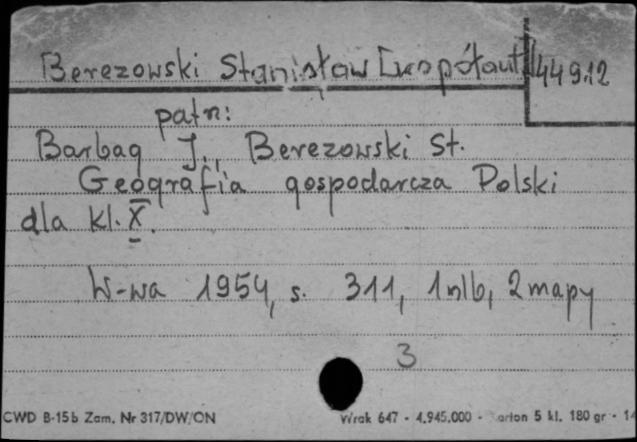 Berezowski Stanisław [współaut] 449.12
patrz:
Barbag J., Berezowski St.
Geografia gospodarcza Polski
dla kl. X.
W-wa 1954, s. 311, 1 nlb, 2 mapy
3
CWD B-15b Zam. Nr 317/DW/ON Wrak 647 - 4.945.000 - arton 5 kl. 180 gr - 14